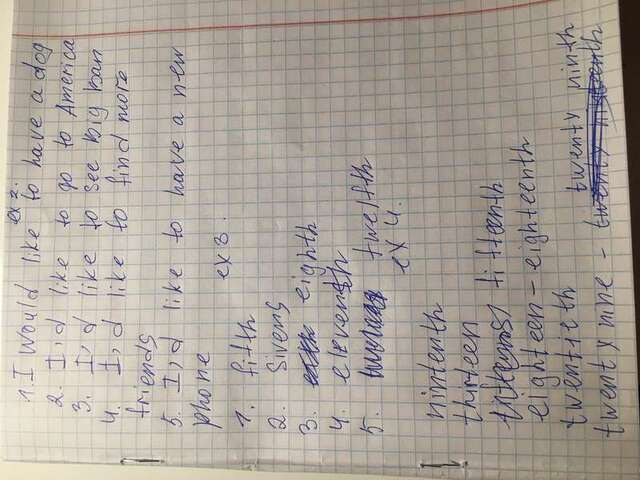 ex 2.
1 I would like to have a dog
2. I,d like to go to America
3. I,d like to see big ban
4. I,d like to find more
friends
5. I,d like to have a new
phone
ex 3.
1. fifth
2. Siveng
3. eighth
4. elevength
5. twelfth
ex 4.
ninteenth
thirteen
fifteenth
eighteen - eighteenth
twentieth
twenty nine - twenty ninth